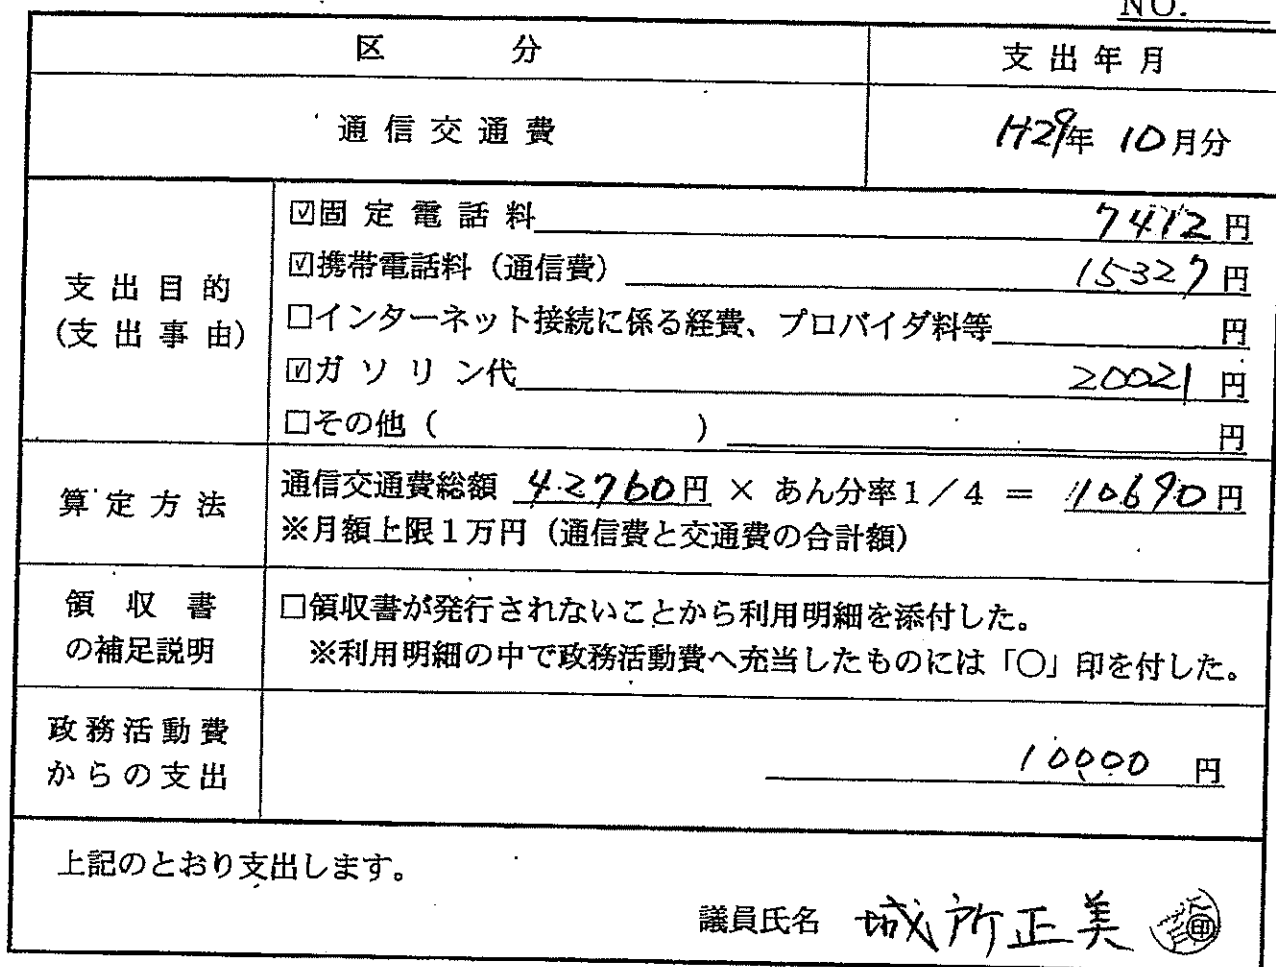 NO.
区 分 支出年月
通信交通費 H29年 10月分
支出目的
(支出事由)
☑固定電話料 7412円
☑携帯電話料（通信費） 15327円
□インターネット接続に係る経費、プロバイダ料等 円
☑ガソリン代 20021円
□その他（ ） 円
算定方法
通信交通費総額 42760円 × あん分率1／4 = 10690円
※月額上限1万円（通信費と交通費の合計額）
領収書
の補足説明
□領収書が発行されないことから利用明細を添付した。
※利用明細の中で政務活動費へ充当したものには「○」印を付した。
政務活動費
からの支出
10000 円
上記のとおり支出します。
議員氏名 城所正美